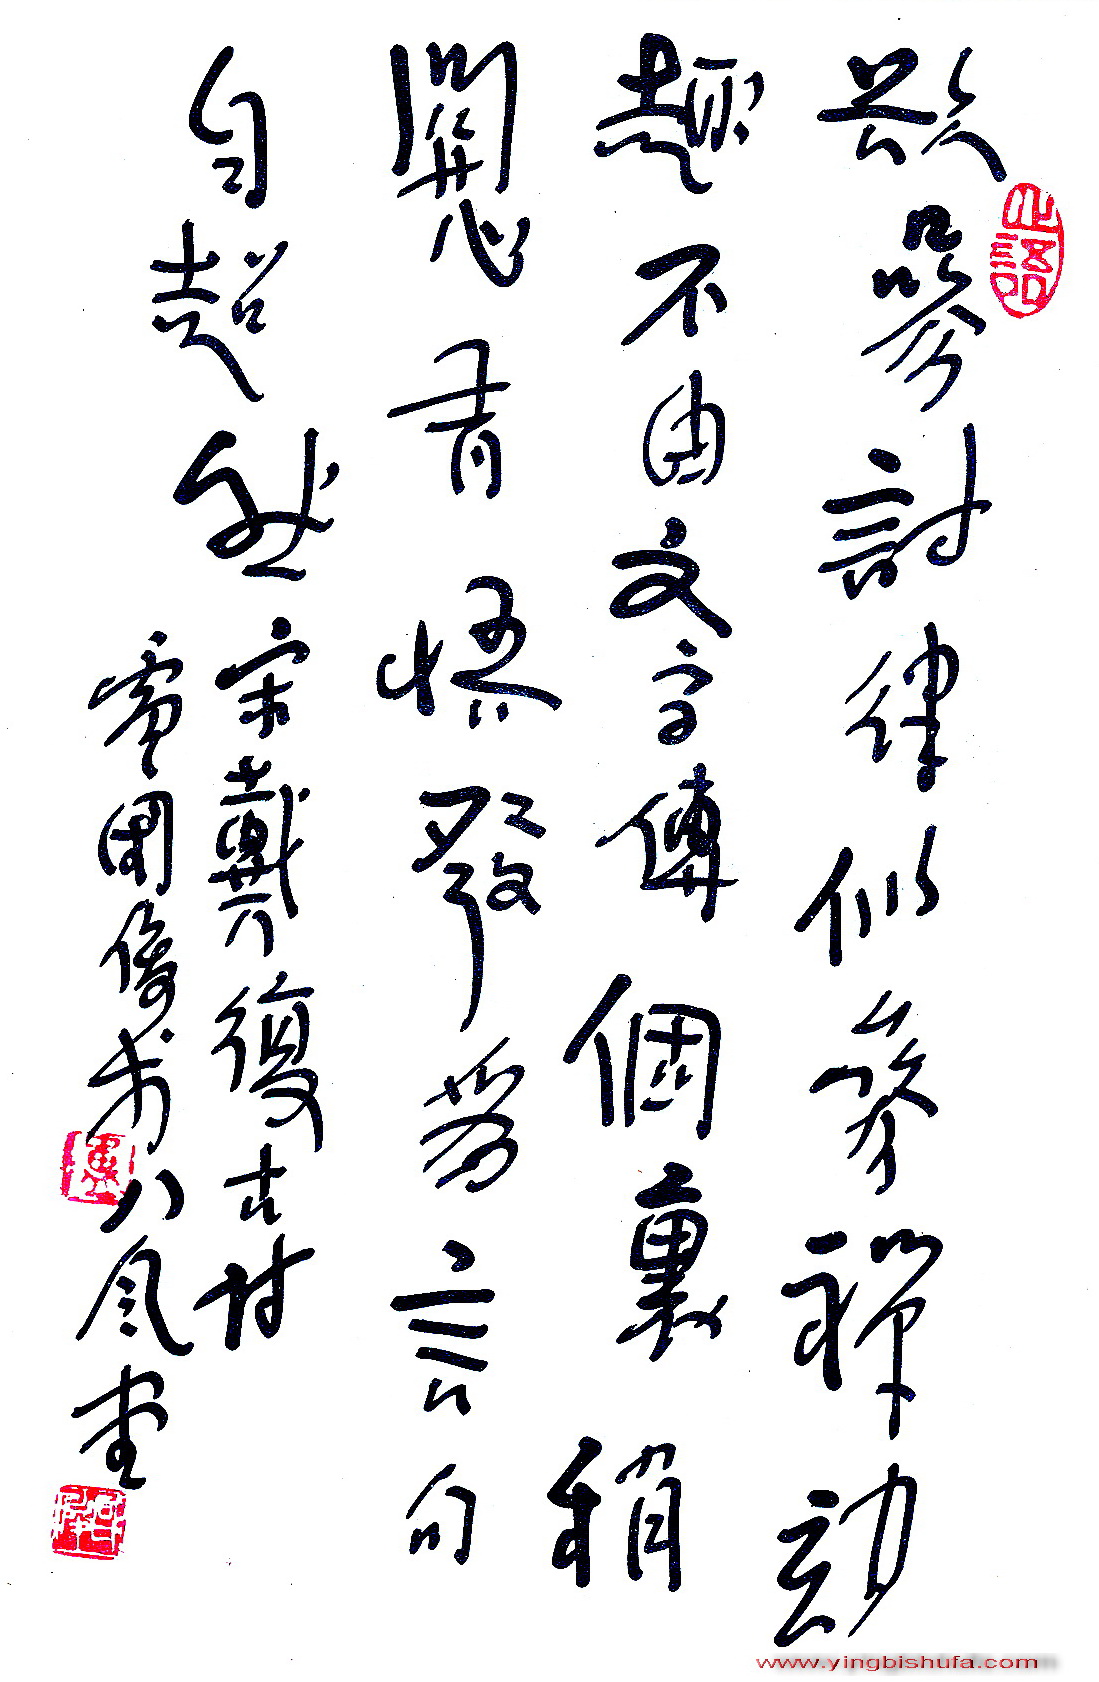 欲參詩律似參禪妙
趣不由文字傳個裏稍
關心有悟發為言句
自超然
宋戴復古詩
書八風堂
www.yingbishufa.com